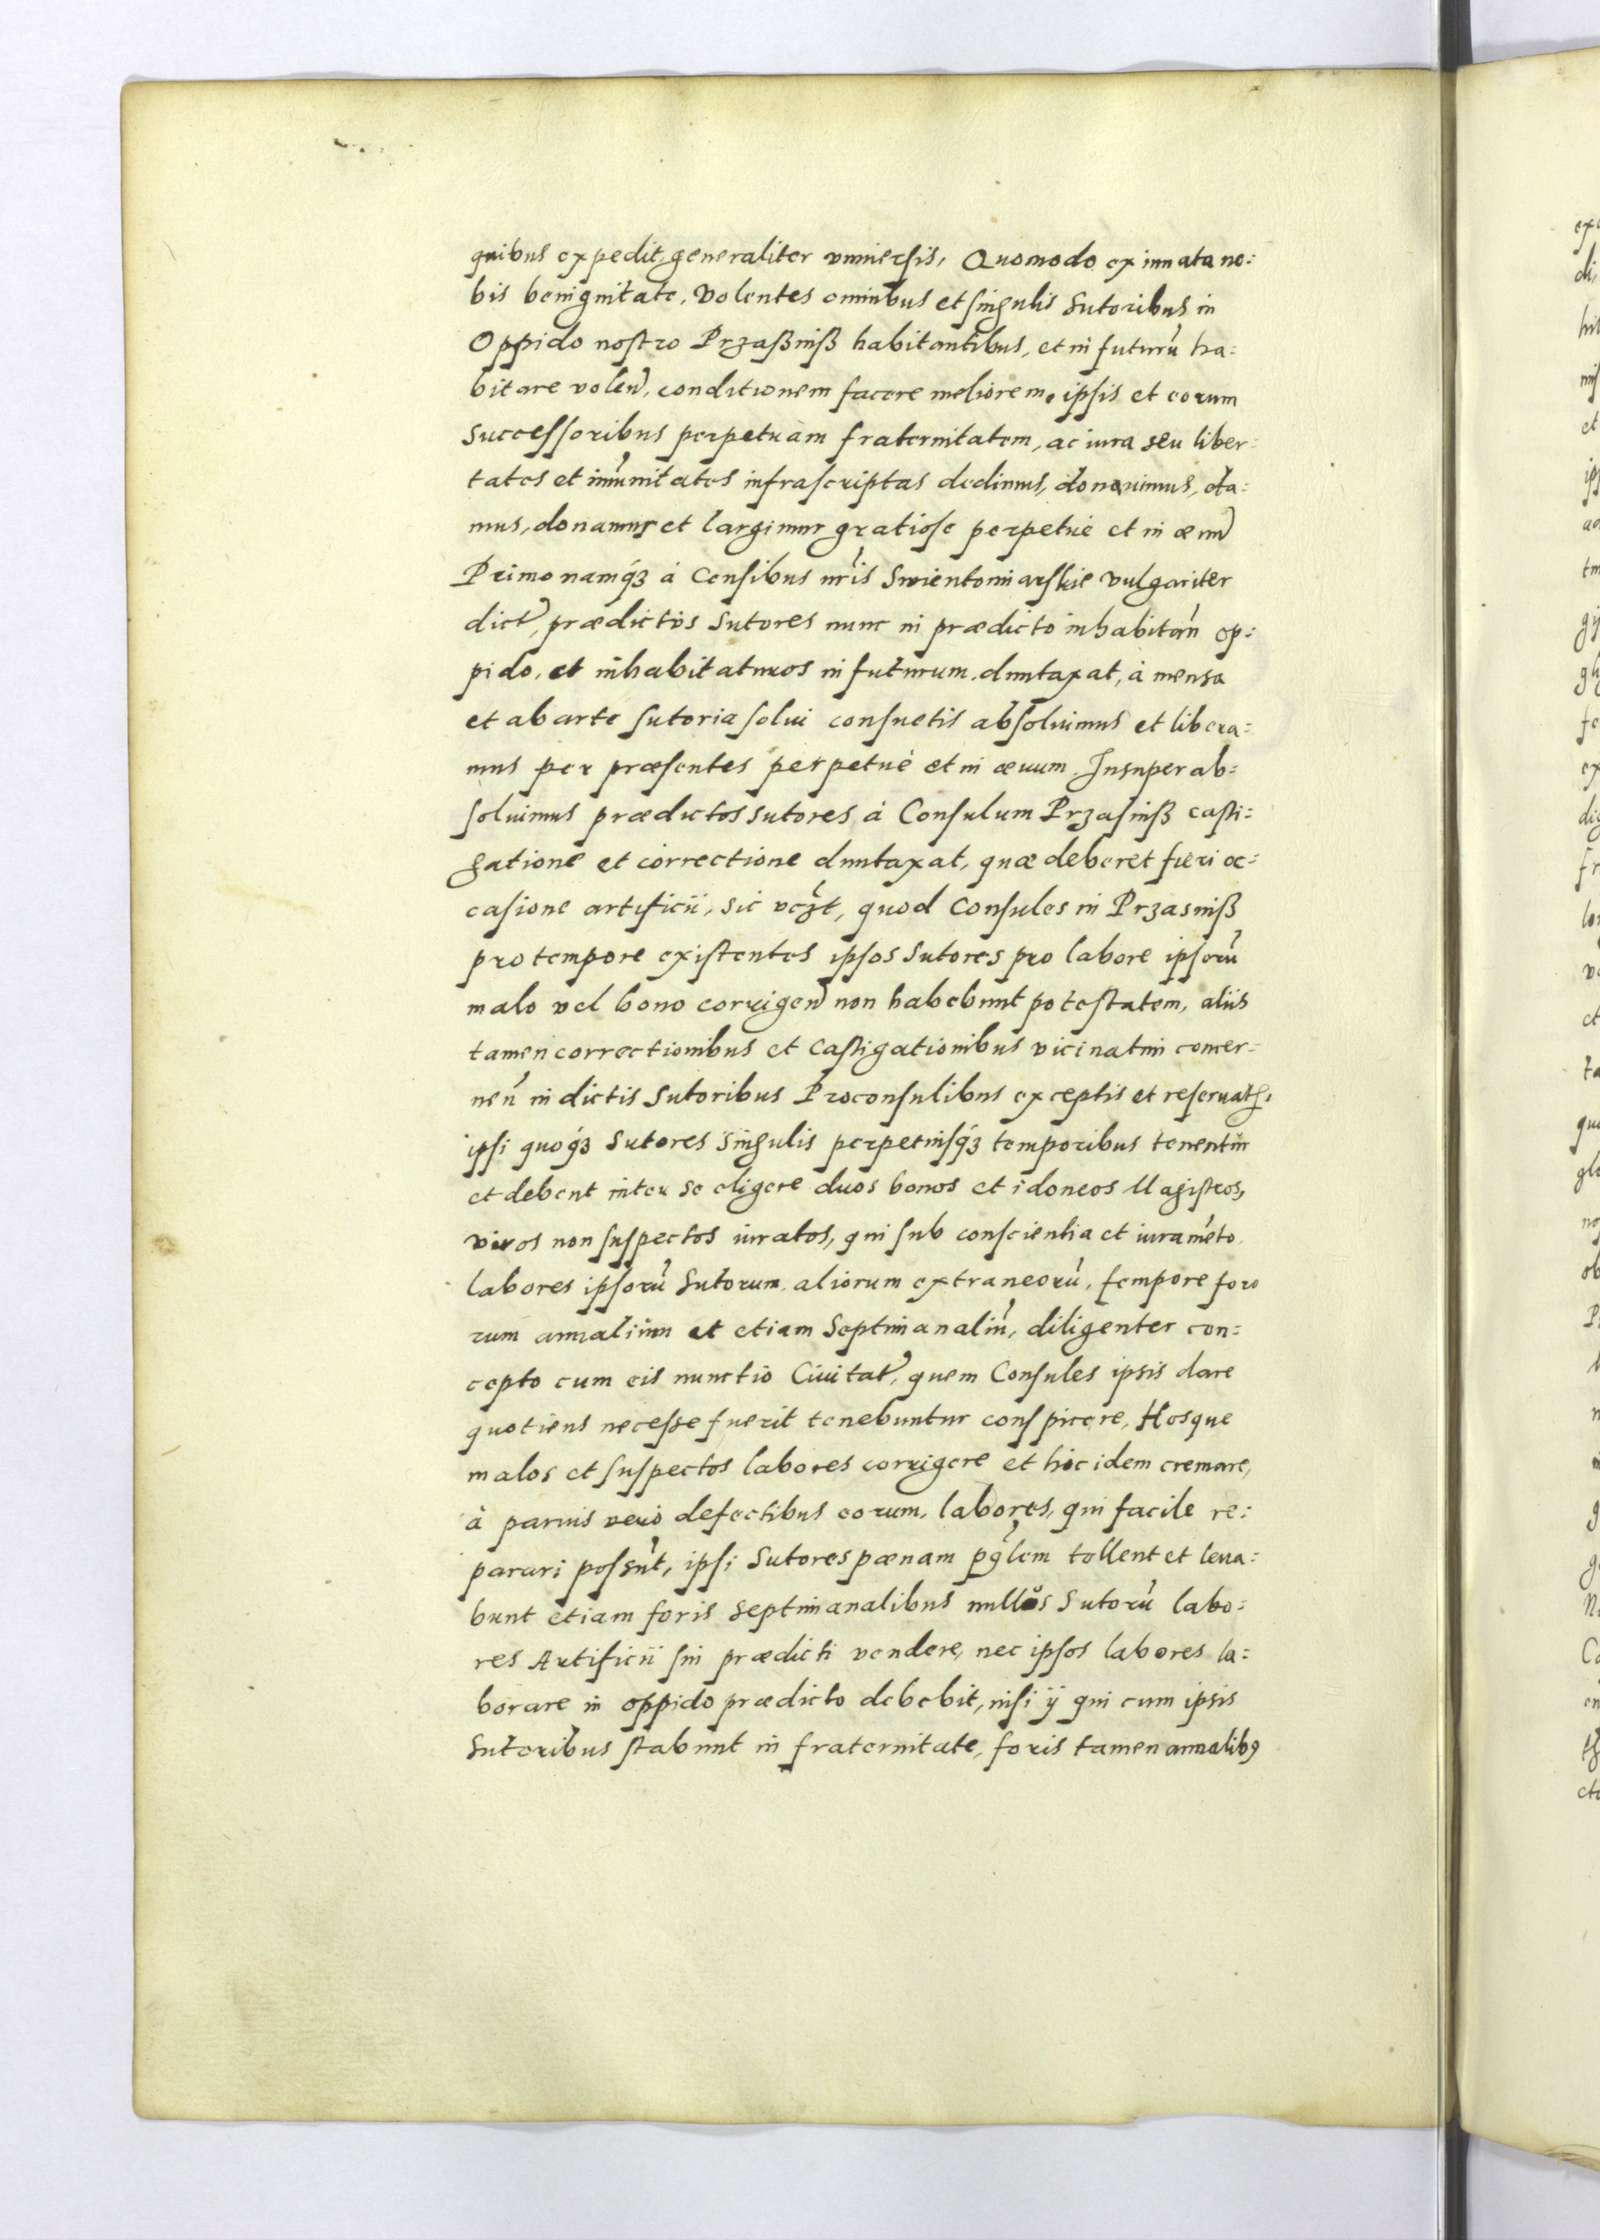 quibus expedit, generaliter vniuersis, Quomodo ex innata no:
bis benignitate, Volentes omnibus et singulis Sutoribus in
Oppido nostro Przaßniß habitantibus, et in futurũ ha:
bitare volen̄, conditionem facere meliorem, ipsis et eorum
Successoribus perpetuam fraternitatem, ac iura seu liber:
tates et im̃unitates infrascriptas dedimus, donauimus, da:
mus, donamus et largimur gratiose perpetuè et in æuũ
Primo namq́ꝫ à Censibus nr̃is Swientomiarskie vulgariter
dict̃, prædictos Sutores nunc in prædicto inhabitan̄ op:
pido, et inhabitaturos in futurum duntaxat, à mensa
et ab arte sutoria solui consuetis absoluimus et libera:
mus per præsentes perpetuè et in æuum. Insuper ab:
soluimus prædictos sutores à Consulum Przasniß casti:
gatione et correctione duntaxat, quæ deberet fieri oc:
casione artificii, sic vcꝫt, quod Consules in Przasniß
pro tempore existentes ipsos Sutores pro labore ipsorũ
malo vel bono corrigen̄ non habebunt potestatem, aliis
tamen correctionibus et Castigationibus vicinatui concer:
nen̄ in dictis Sutoribus Proconsulibus exceptis et reseruatꝭ,
ipsi quoq́ꝫ Sutores Singulis perpetuisq́ꝫ temporibus tenentur
et debent inter se eligere duos bonos et idoneos Magistros,
viros non suspectos iuratos, qui sub conscientia et iuramẽto
labores ipsorũ Sutorum, aliorum extraneorũ, tempore foro
rum annalium et etiam Septimanaliũ, diligenter con:
cepto cum eis nunctio Ciuitat̃, quem Consules ipsis dare
quotiens necesse fuerit tenebuntur conspicere, Hosque
malos et suspectos labores corrigere et hoc idem cremare,
à paruis verò defectibus eorum, labores, qui facile re:
parari possũt, ipsi Sutores pænam pg̃lem tollent et leua:
bunt etiam foris septimanalibus nullos Sutorũ labo:
res Artificii sui prædicti vendere, nec ipsos labores la:
borare in oppido prædicto debebit, nisi ÿ qui cum ipsis
Sutoribus stabunt in fraternitate, foris tamen annalibꝰ